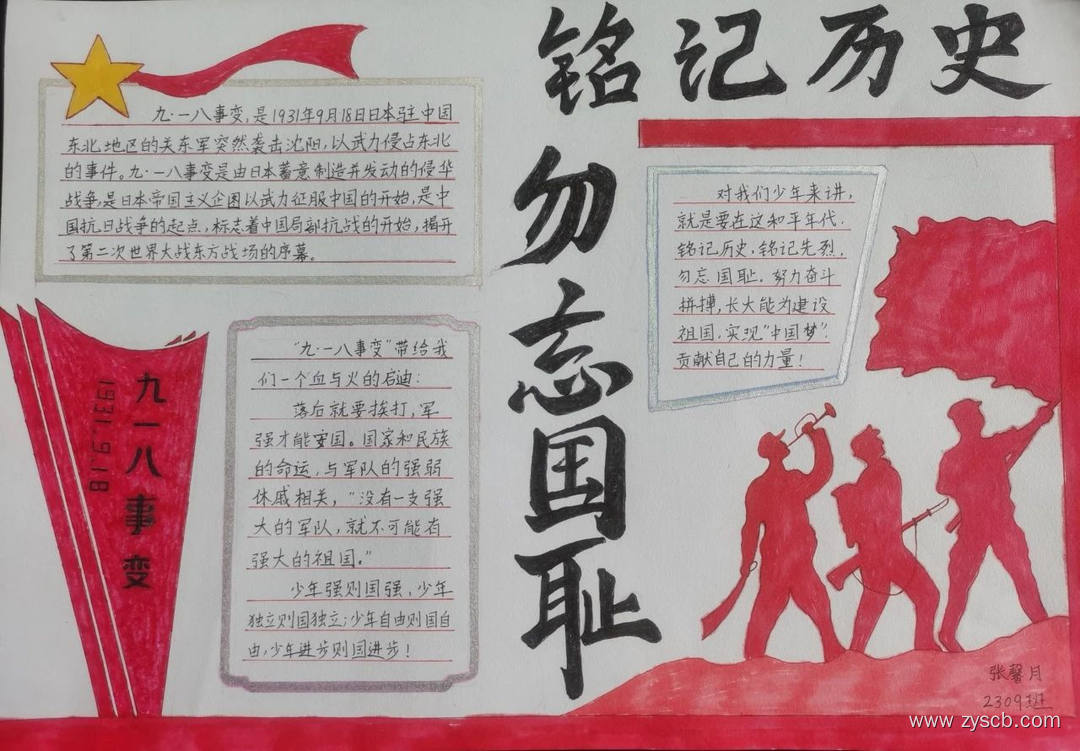 铭记历史
勿忘国耻
九·一八事变,是1931年9月18日日本驻中国
东北地区的关东军突然袭击沈阳,以武力侵占东北
的事件。九·一八事变是由日本蓄意制造并发动的侵华
战争,是日本帝国主义企图以武力征服中国的开始,是中
国抗日战争的起点,标志着中国局部抗战的开始,揭开
了第二次世界大战东方战场的序幕。
九一八事变
1931.9.18
“九·一八事变”带给我
们一个血与火的启迪:
落后就要挨打,军
强才能国。国家和民族
的命运,与军队的强弱
休戚相关,“没有一支强
大的军队,就不可能有
强大的祖国。”
少年强则国强,少年
独立则国独立;少年自由则国自
由,少年进步则国进步!
对我们少年来讲,
就是要在这和平年代.
铭记历史,铭记先烈,
勿忘国耻.努力奋斗
拼搏,长大能为建设
祖国,实现“中国梦”
贡献自己的力量!
张馨月
2309班
www.zyscb.com